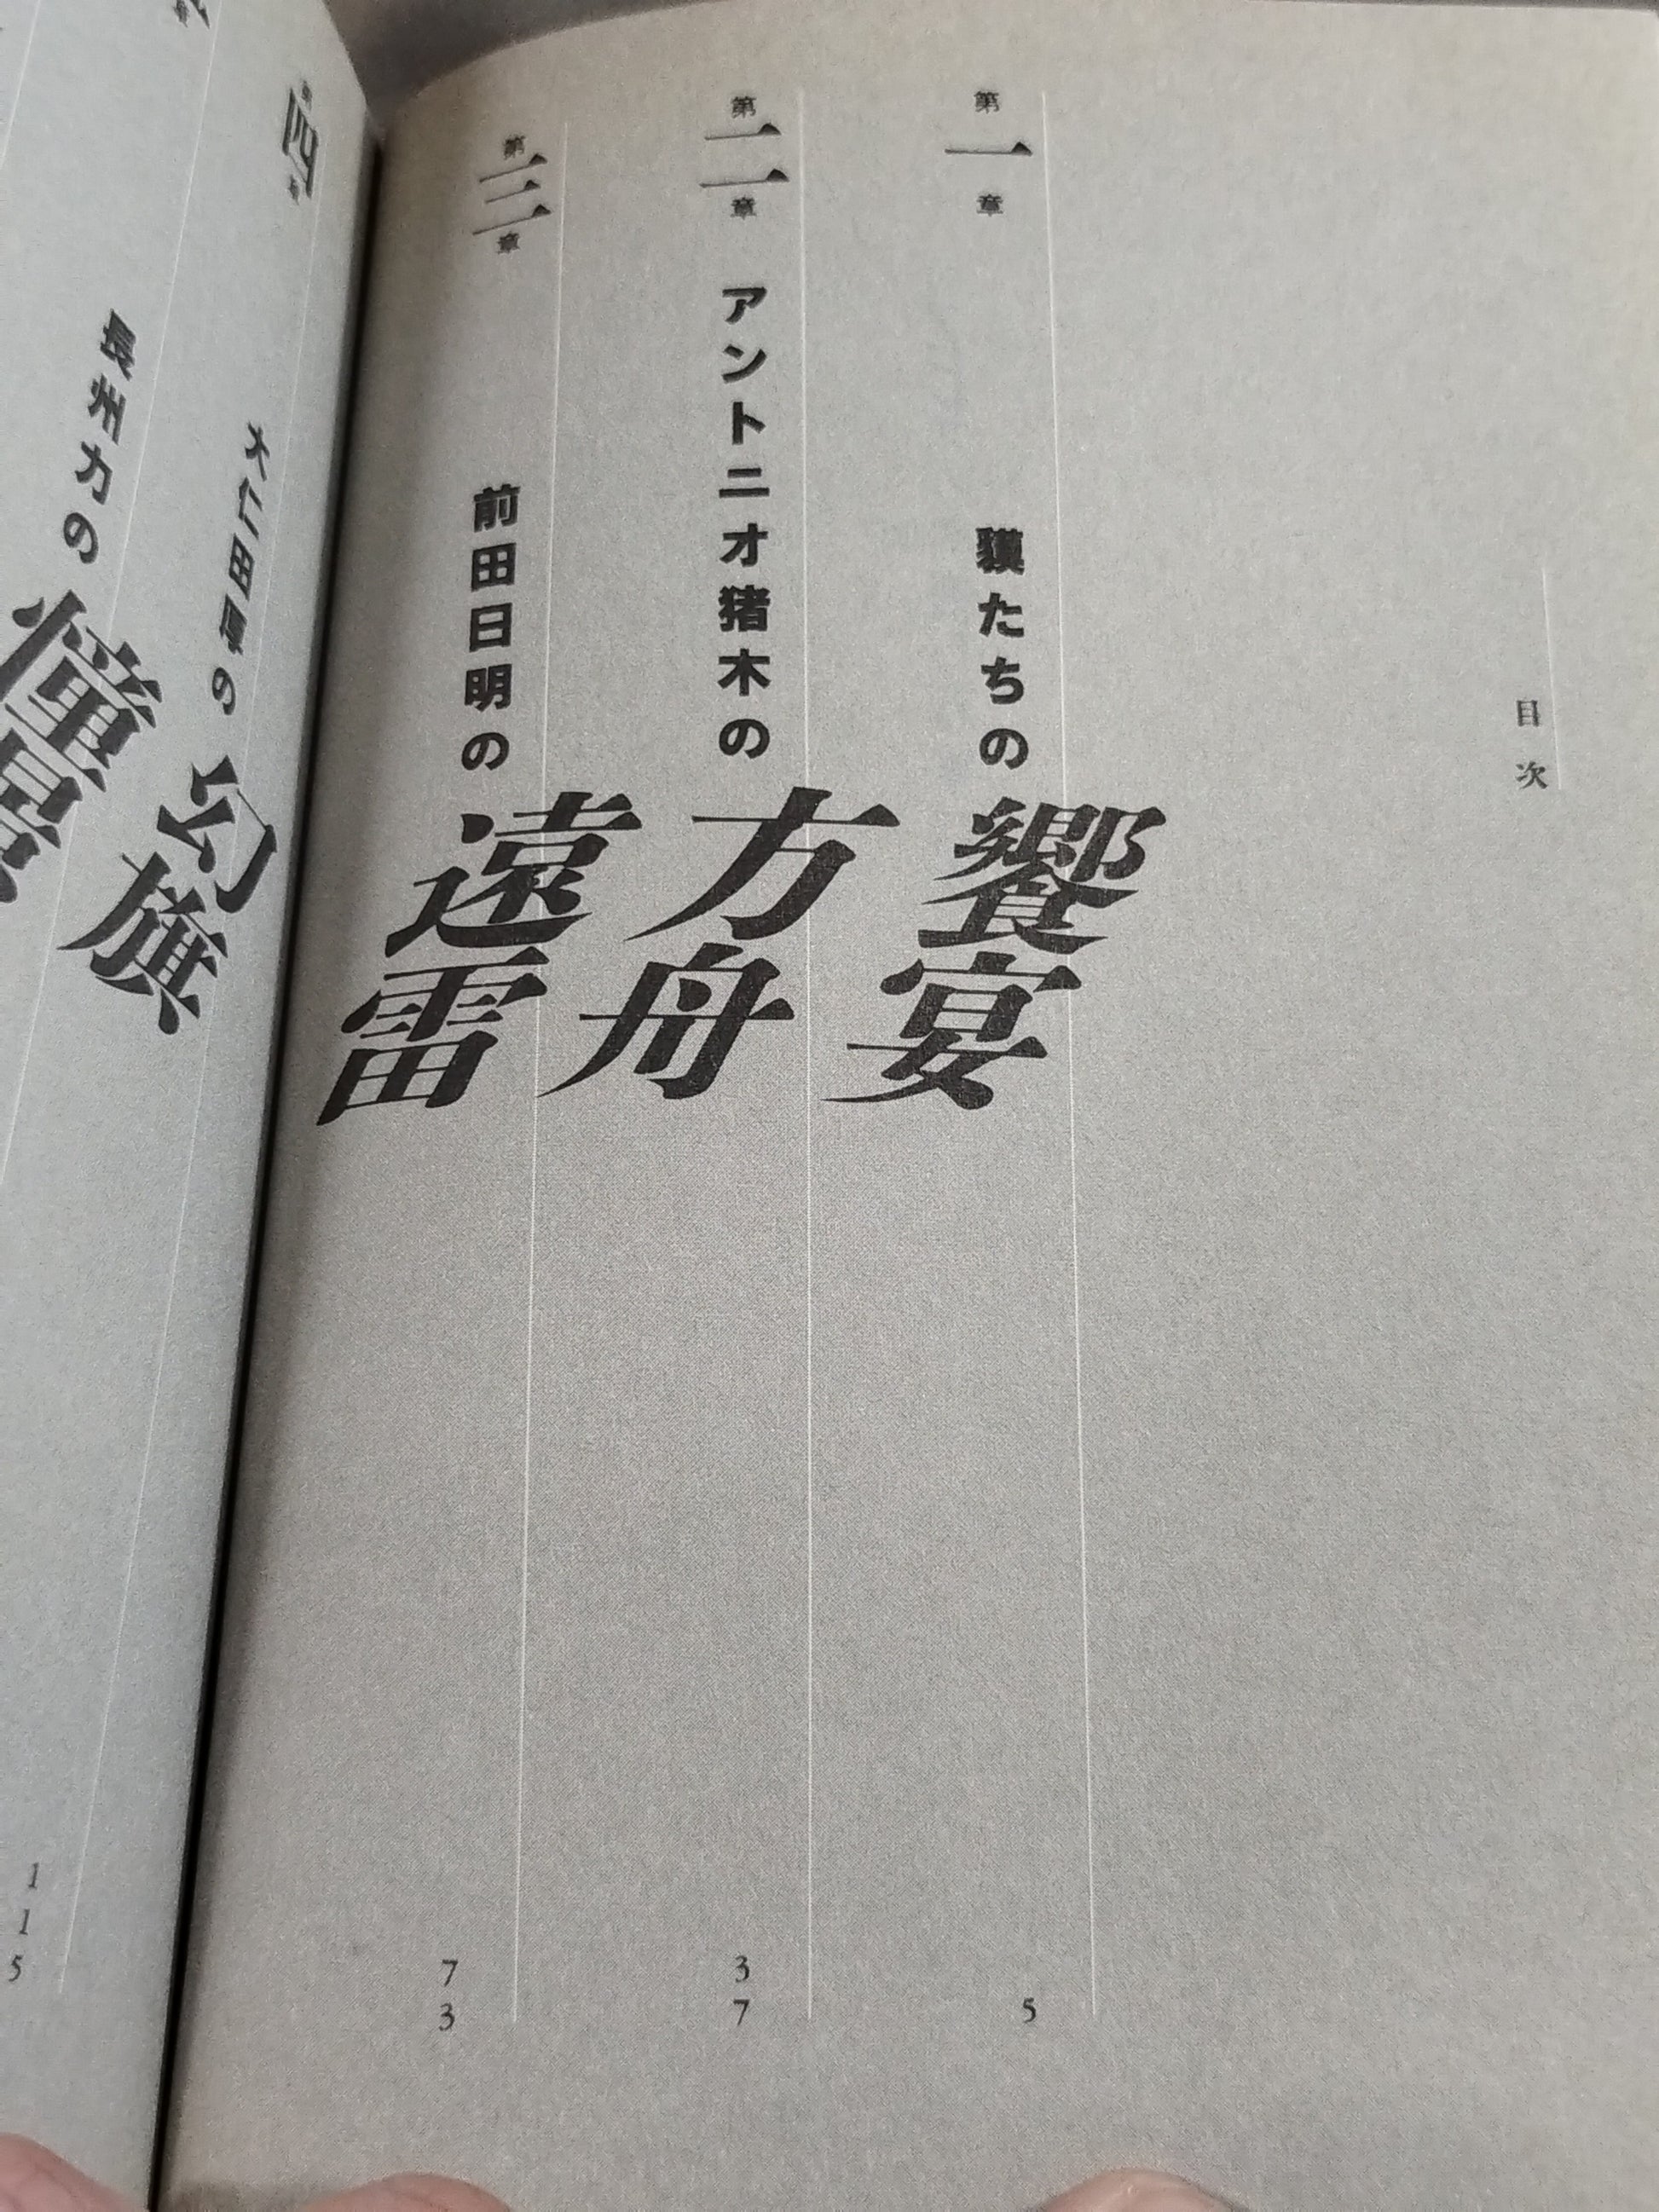 目次
第一章
たちの饗宴
5
第二章
アントニオ猪木の方舟
37
第三章
前田日明の遠雷
73
第四章
大仁田厚の幻旗
長州力の憧憬
115